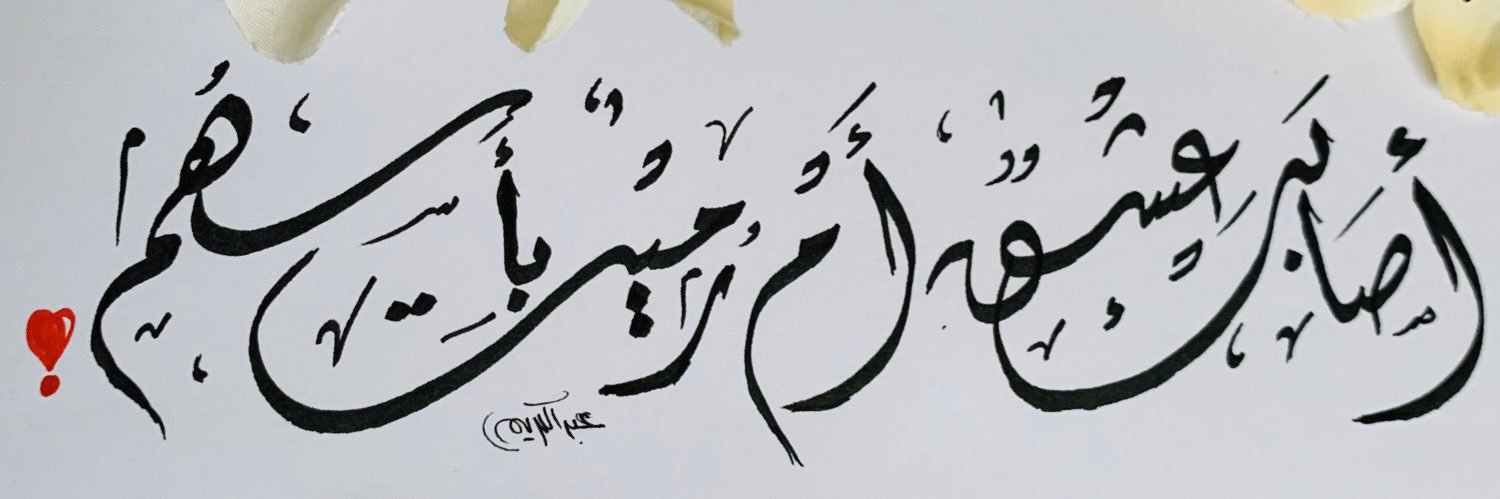 أَصَابَكَ عِشْقٌ أَمْ رُمِيتَ بِأَسْهُمِ
عبدالكريم